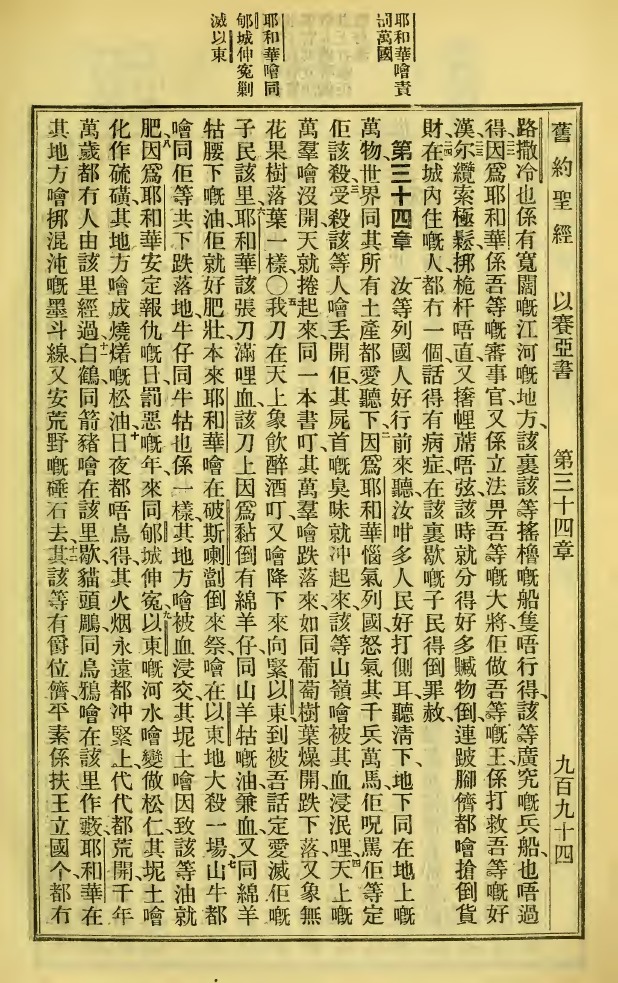 耶和華噲責
罰萬國
耶和華噲同
郇城伸冤剿
滅以東
舊約聖經 以賽亞書 第三十四章 九百九十四
路撒冷也係有寬闊嘅江河嘅地方、該裏該等搖櫓嘅船隻唔行得、該等廣究嘅兵船、也唔過
得、因爲耶和華係吾等嘅審事官、又係立法畀吾等嘅大將、佢做吾等嘅王、係打救吾等嘅好
漢、尔纜索極鬆、挷桅杆唔直、又撐𢃇蓆唔弦、該時就分得好多贓物倒、連跛腳儕都噲搶倒貨
財、在城內住嘅人、都冇一個話得有病症、在該裏歇嘅子民、得倒罪赦、
第三十四章 汝等列國人好行前來聽、汝咁多人民好打側耳聽淸下、地下同在地上嘅
萬物、世界同其所有土產、都愛聽下、因爲耶和華惱氣列國、怒氣其千兵萬馬、佢呪罵佢等、定
佢該殺受殺該等人噲丢開、佢其屍首嘅臭味就沖起來、該等山嶺噲被其血浸泯哩、天上嘅
萬羣噲沒開、天就捲起來、同一本書叮、其萬羣噲跌落來、如同葡萄樹葉燥開跌下落、又象無
花果樹落葉一樣、〇我刀在天上象飲醉酒叮、又噲降下來向緊以東、到被吾話定愛滅佢嘅
子民該里、耶和華該張刀滿哩血、該刀上因爲黏倒有綿羊仔、同山羊牯嘅油兼血、又同綿羊
牯腰下嘅油、佢就好肥壯、本來耶和華噲在破斯喇劏倒來祭、噲在以東地大殺一場、山牛都
噲同佢等共下跌落地、牛仔同牛牯也係一樣、其地方噲被血浸交、其坭土噲因致該等油就
肥、因爲耶和華安定報仇嘅日、罰惡嘅年、來同郇城伸冤、以東嘅河水噲變做松仁、其坭土噲
化作硫磺、其地方噲成燒㸐嘅松油、日夜都唔烏得、其火烟永遠都沖緊上、代代都荒開、千年
萬歲都冇人由該里經過、白鶴同箭豬噲在該里歇、貓頭鵰同烏鴉噲在該里作藪、耶和華在
其地方噲挷混沌嘅墨斗線、又安荒野嘅硾石去、其該等有爵位儕、平素係扶王立國个、都冇